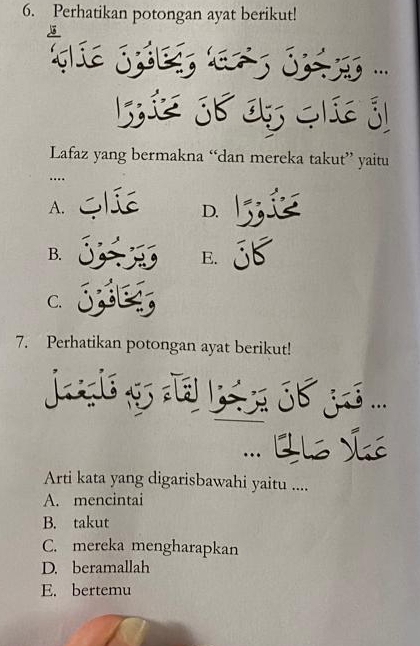 6. Perhatikan potongan ayat berikut!
... وَيَرْجُوْنَ رَحْمَتَهٗ وَيَخَافُوْنَ عَذَابَهٗ ۗ
اِنَّ عَذَابَ رَبِّكَ كَانَ مَحْذُوْرًا
Lafaz yang bermakna “dan mereka takut” yaitu
....
A. عَذَابَ D. مَحْذُوْرًا
B. وَيَرْجُوْنَ E. كَانَ
C. وَيَخَافُوْنَ
7. Perhatikan potongan ayat berikut!
... فَمَنْ كَانَ يَرْجُوْا لِقَاۤءَ رَبِّهٖ فَلْيَعْمَلْ
عَمَلًا صَالِحًا ...
Arti kata yang digarisbawahi yaitu ....
A. mencintai
B. takut
C. mereka mengharapkan
D. beramallah
E. bertemu